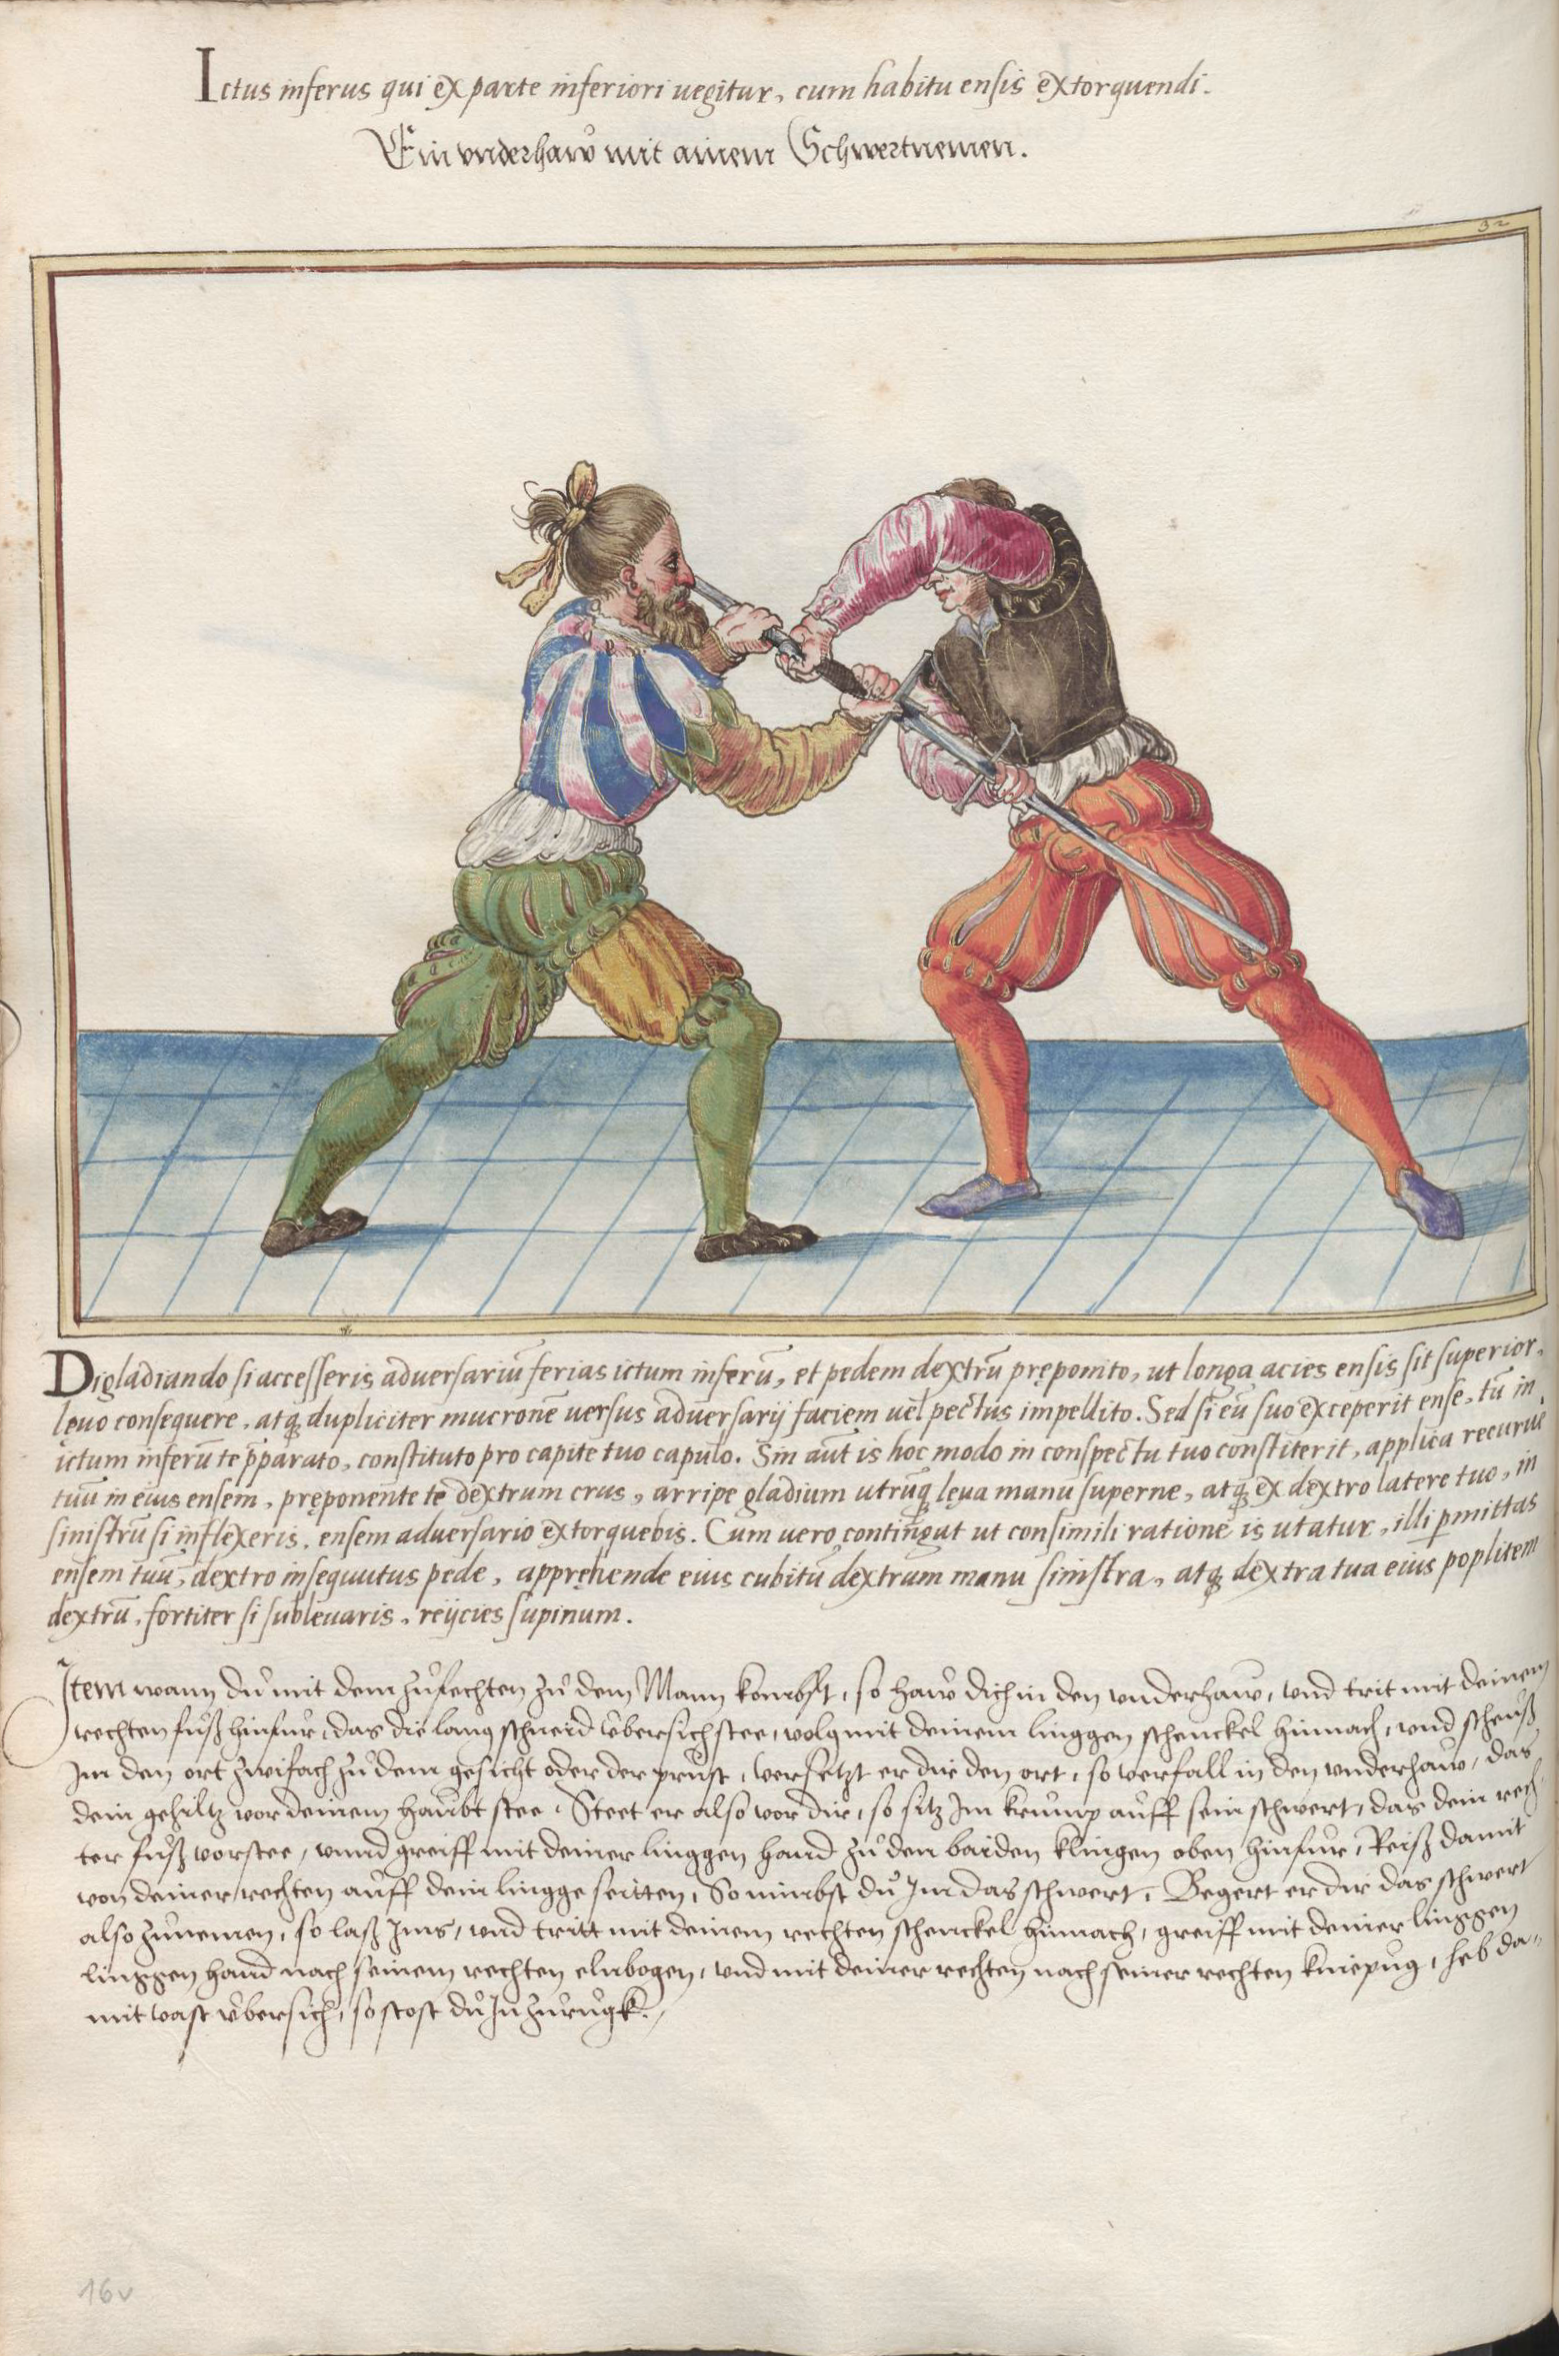 Ictus inferus qui ex parte inferiori uegitur, cum habitu ensis extorquendi.
Ein vnderhaw mit ainem Schwertnemen.
32
Digladiando si accesseris adversariũ ferias ictum inferũ, et pedem dextrũ pręponito, ut longa acies ensis sit superior,
lęuo consequere, atq; dupliciter mucronẽ uersus adversarij faciem uel pectus impellito. Sed si eũ suo exceperit ense, tũ in
ictum inferũ te p̃parato, constituto pro capite tuo capulo. Sin aũt is hoc modo in conspectu tuo constiterit, applica recuruẽ
tuũ in eius ensem, pręponente te dextrum crus, arripe gladium utrũq; lęua manu superne, atq; ex dextro latere tuo, in
sinistrũ si inflexeris, ensem adversario extorquebis. Cum uero contingat ut consimili ratione is utatur, illi p̱mittas
ensem tuũ, dextro insequutus pede, apprehende eius cubitũ dextrum manu sinistra, atq; dextra tua eius poplitem
dextrũ, fortiter si subleuaris, reijcies supinum.
Item wann dů mit dem zůfechten zů dem Mann kombst, so haw dich in den vnderhaw, vnd trit mit deinem
rechten fůß hinfůr, das die lang schneid v̊bersich stee, volg mit deinem linggen schenckel hinnach, vnd scheůß
Im den ort zwifach zů dem gesicht oder der průst, versetzt er dir den ort, so verfall in den vnderhaw, das
dein gehiltz vor deinem haůbt stee, Steet er also vor dir, so sitz Im krůmp aůff sein schwert, das dein rech¬
ter fůß vorstee, vnnd greiff mit deiner linggen hand zů den baiden klingen oben hinfůr, Reiß damit
von deiner rechten aůff dein lingge seitten, So nimbst dů Im das schwert, Begert er dir das schwert
also zůnemen, so laß Ims, vnd tritt mit deinem rechten schenckel hinnach, greiff mit deiner linggen
linggen hand nach seinem rechten elnbogen, vnd mit deiner rechten nach seiner rechten kniepůg, heb da¬
mit vast v̊bersich, so stost dů In zůrůgk.
16v